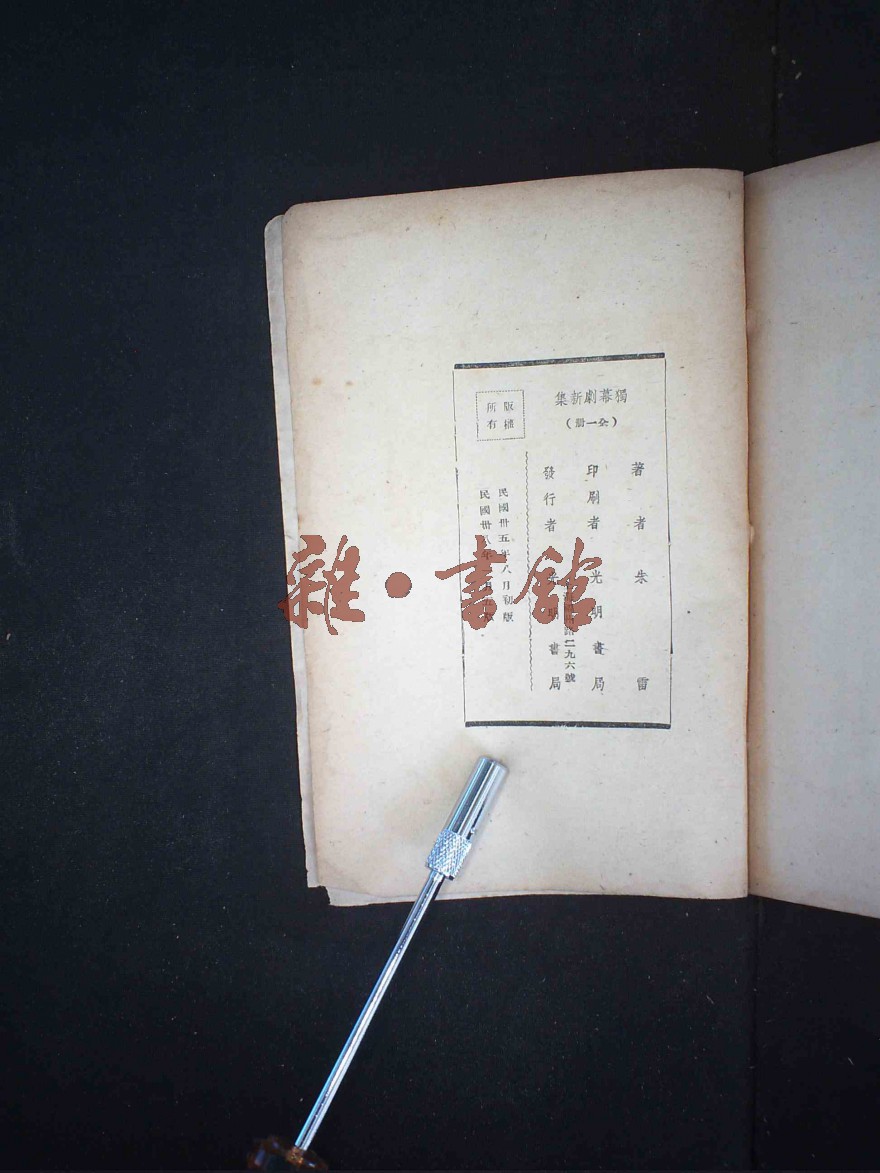 獨幕劇新集
（全一册）
著者 朱雷
印刷者 光明書局
二九六號
發行者 書局
版權
所有
民國卅五年八月初版
民國卅八年 月
雜·書館